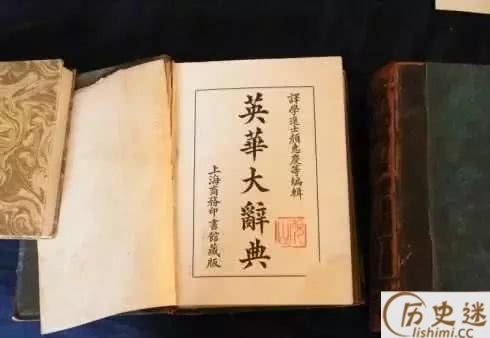 譯學進士顏惠慶等編輯
英華大辭典
上海商務印書館藏版
历史迷
lishimi.cc